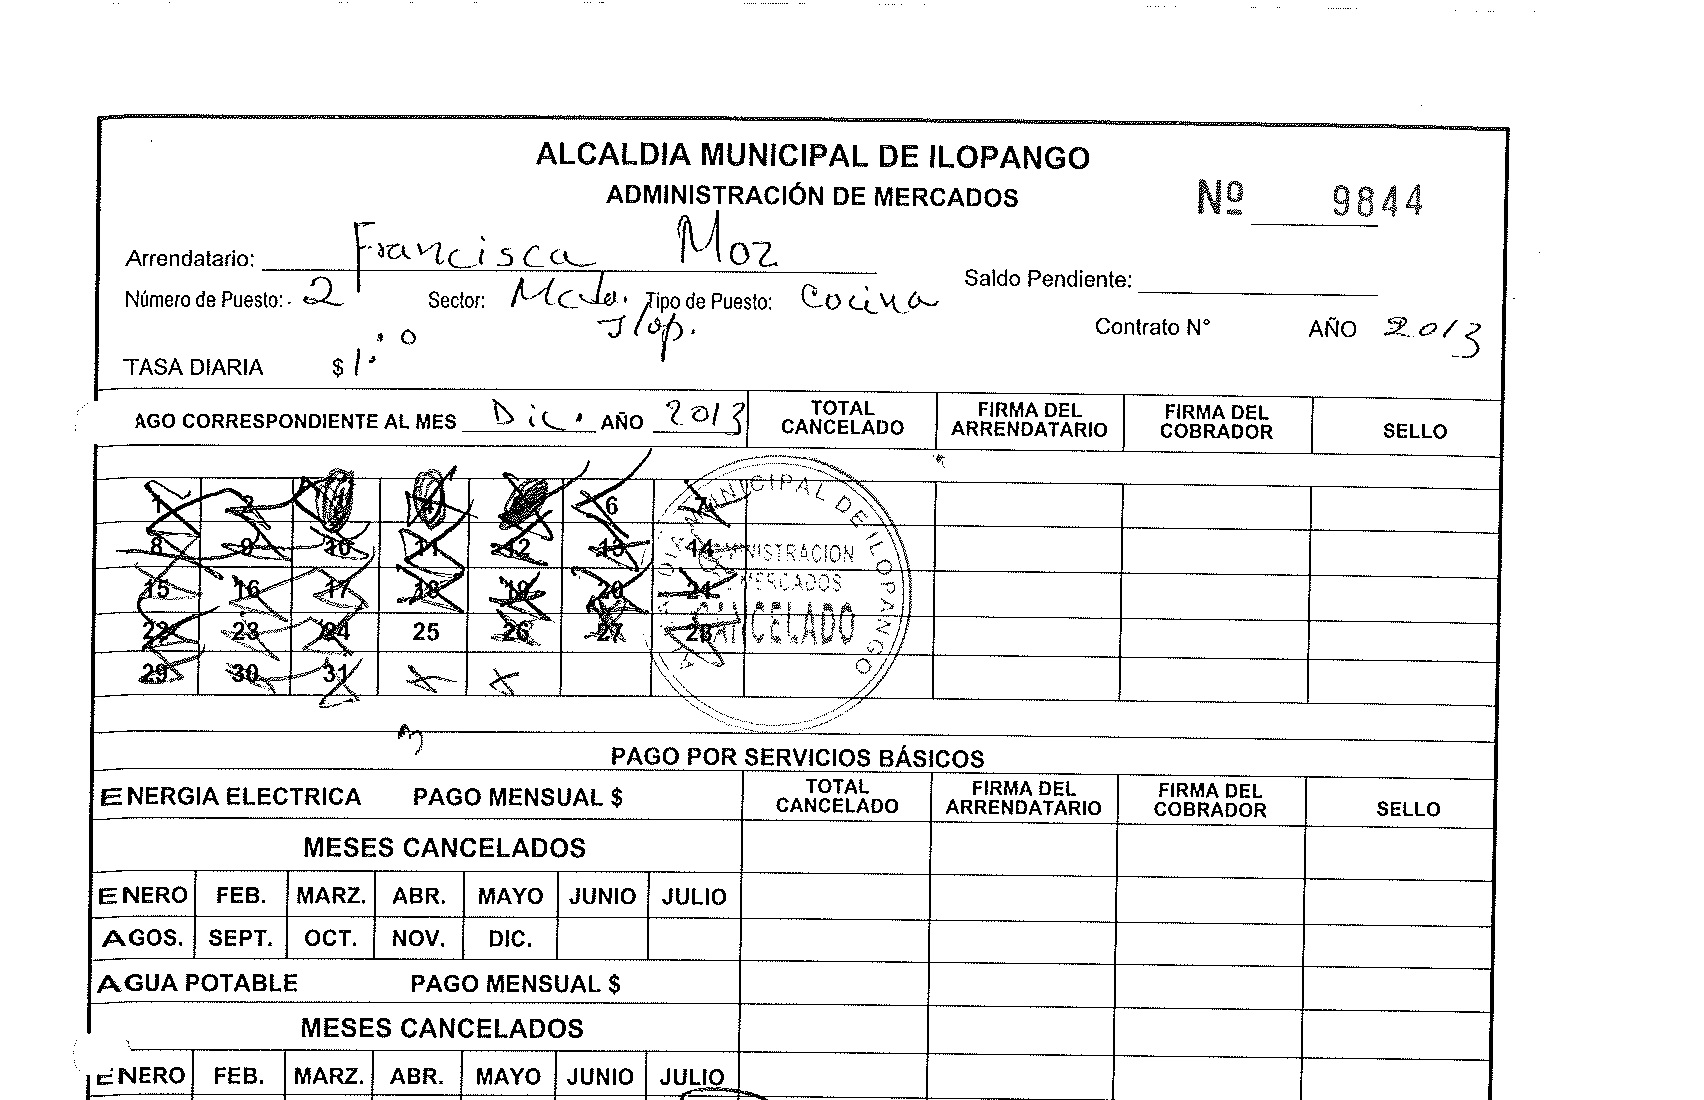 ALCALDIA MUNICIPAL DE ILOPANGO
ADMINISTRACIÓN DE MERCADOS
Nº 9844
Arrendatario: Francisca Moz
Saldo Pendiente:
Número de Puesto: 2 Sector: Mcdo. Ilop. Tipo de Puesto: Cocina
Contrato N° AÑO 2013
TASA DIARIA $
AGO CORRESPONDIENTE AL MES Dic. AÑO 2013 TOTAL CANCELADO FIRMA DEL ARRENDATARIO FIRMA DEL COBRADOR SELLO
1 2 4 6 7
8 9 10 11 12 13 14
15 16 17 18 19 20 21
22 23 24 25 26 27 28
29 30 31
MUNICIPAL DE ILOPANGO
CANCELADO
PAGO POR SERVICIOS BÁSICOS
ENERGIA ELECTRICA PAGO MENSUAL $ TOTAL CANCELADO FIRMA DEL ARRENDATARIO FIRMA DEL COBRADOR SELLO
MESES CANCELADOS
ENERO FEB. MARZ. ABR. MAYO JUNIO JULIO
AGOS. SEPT. OCT. NOV. DIC.
AGUA POTABLE PAGO MENSUAL $
MESES CANCELADOS
ENERO FEB. MARZ. ABR. MAYO JUNIO JULIO